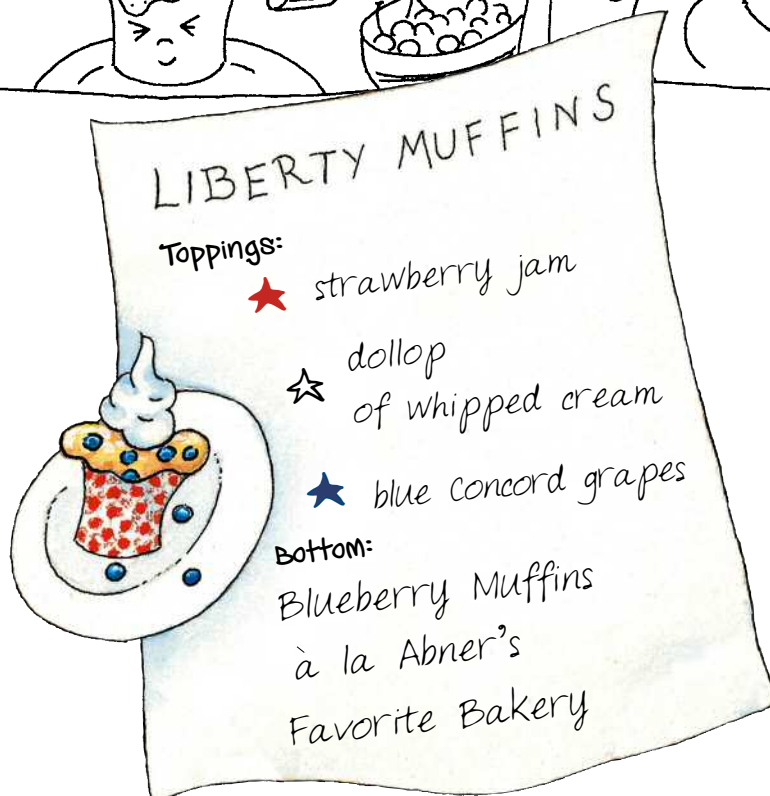 LIBERTY MUFFINS
Toppings:
strawberry jam
dollop
of whipped cream
blue Concord grapes
Bottom:
Blueberry Muffins
à la Abner's
Favorite Bakery